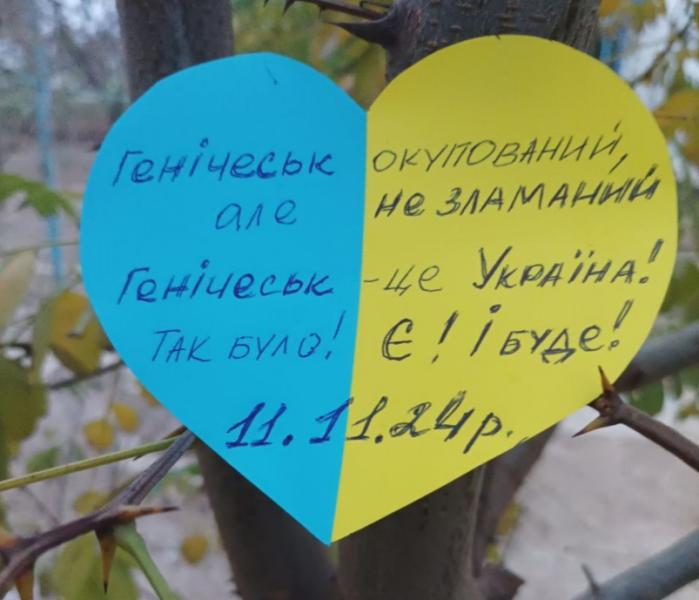 Генічеськ окупований,
але не зламаний
Генічеськ - це Україна!
Так було! Є! І буде!
11.11.24р.